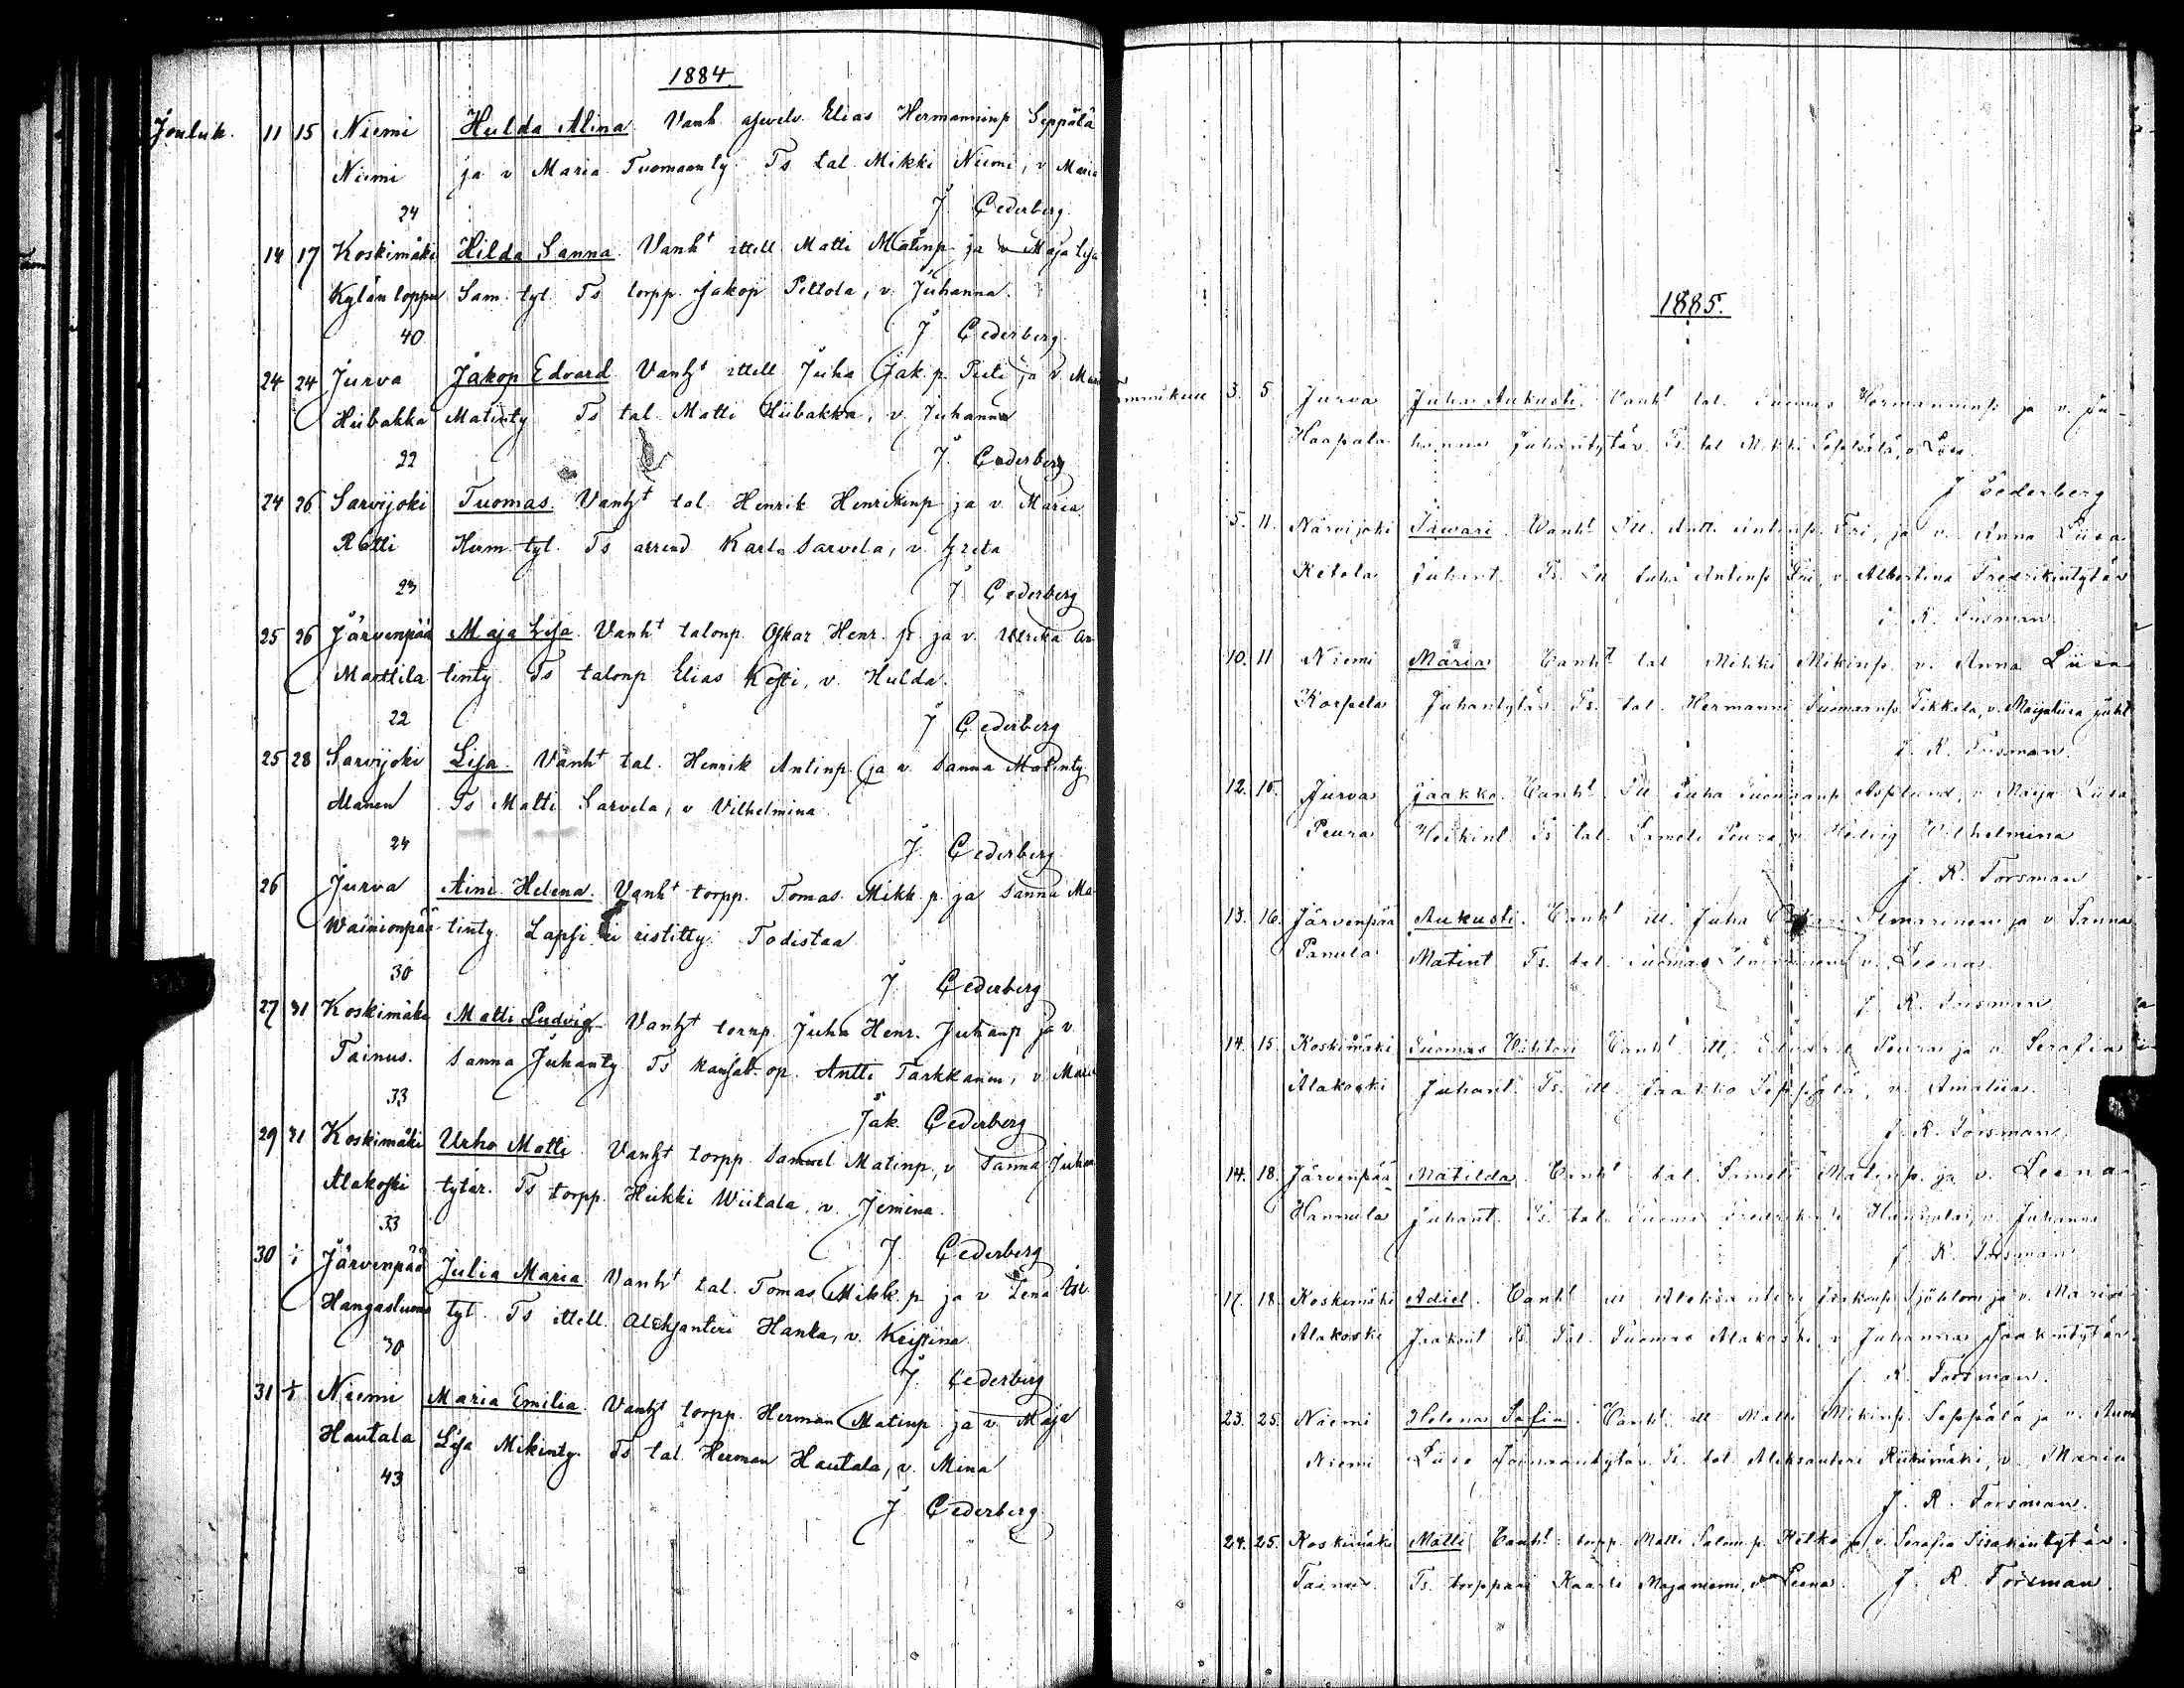 1884.
Jouluk. 11 15 Niemi Hulda Alina. Vanh. Elias Hermanninp Seppälä
Niemi ja v Maria Tuomaanty. Ts tal. Mikki Niemi, v Maria
24 J. Cederberg.
14 17 Koskimäki Hilda Sanna. Vanht ittell Matti Matinp ja v Maja Lisa
Kylän loppu Sam. tyt. Ts torpp. Jakop Peltola, v. Juhanna.
40 J Cederberg.
24 24 Jurva Jakop Edvard Vanht ittell Juha Jak. p. ja v
Hiibakka Matinty Ts tal Matti Hiibakka, v. Juhanna
22 J. Cederberg
24 26 Sarvijoki Tuomas. Vanht tal Henrik Henrikinp ja v. Maria
Rätti Herm. tyt. Ts arrend Karl Sarvela, v. Greta
23 J Cederberg
25 26 Järvenpää Maja Lisa. Vanht talonp. Oskar Henr. p. ja v. Ulrika An-
Marttila tinty. Ts talonp Elias Kosti, v. Hulda.
22 J Cederberg
25 28 Sarvijoki Lisa. Vanht tal. Henrik Antinp ja v. Sanna Matinty.
Alanen Ts Matti Sarvela, v Vilhelmina
24 J. Cederberg
26 Jurva Aini Helena. Vanht torpp. Tomas Mikk. p. ja Sanna Ma-
Wainionpää tinty. Lapsi ei ristitty. Todistaa
30 J. Cederberg
27 31 Koskimäki Matti Ludvig. Vanht torpp. Juha Henr. Juhanp ja v.
Tainus. Sanna Juhanty Ts kansak. op. Antti Tarkkanen, v.
33 Jak. Cederberg
29 31 Koskimäki Urho Matti. Vanht torpp. Samuel Matinp, v Sanna Juhan
Alakoski tytär. Ts torpp. Heikki Wiitala, v. Jemina.
33 J. Cederberg
30 Järvenpää Julia Maria Vanht tal. Tomas Mikk. p. ja v Lena
Hangasluoma tyt. Ts ittell. Aleksanteri Hanka, v. Kristina
30 J. Cederberg
31 Niemi Maria Emilia. Vanht torpp. Herman Matinp ja v. Maja
Hautala Lisa Mikinty. Ts tal. Herman Hautala, v. Mina
43 J Cederberg
1885.
3. 5. Jurva Juha Aukusti. Vanht tal. Tuomas Hermanninp ja v. Ju-
Haapala hanna Juhantytär. Ts. tal Mikki v. Liisa
J Cederberg
5. 11. Närvijoki Iiwari. Vanht Itt. Antti Antinp. ja v. Anna Liisa
Ketola Juhant. Ts. Itt Juha Antinp v. Albertina Fredrikintytär
J. R. Forsman.
10. 11 Niemi Maria Vanht tal Mikki Mikinp. v. Anna Liisa
Korpela Juhantytär. Ts. tal. Hermanni Tuomaanp. Tikkala, v. Maijaliisa Juht
J. R. Forsman.
12. 15. Jurva Jaakko. Vanht Itt Juha Tuomaanp Asplund, v Maija Liisa
Peura Heikint. Ts tal. Sameli Peura, v. Hedvig Wilhelmina
J. R. Forsman
13. 16. Järvenpää Aukusti. Vanht itt. Juha Ilmarinen ja v Sanna
Panula Matint Ts. tal. Tuomas v. Leena
J. R. Forsman
14. 15. Koskimäki Tuomas Vihtori Vanht itt. Peura ja v. Serafia
Alakoski Juhant. Ts. itt. Jaakko Seppälä, v. Amaliia
J. R. Forsman.
14. 18. Järvenpää Matilda. Vanht tal. Sameli Matinp. ja v. Leena
Hannula Juhant. Ts. tal. Tuomas Hannula, v. Juhanna
J. R. Forsman
17. 18. Koskimäki Adiel. Vanht itt Aleksanteri Jaakonp Sjöblom ja v. Maria
Alakoski Jaakont Ts. tal. Tuomas Alakoski, v Juhanna Jaakontytär
J. R. Forsman.
23. 25. Niemi Helena Sofia. Vanht itt Matti Mikinp. Seppälä ja v. Anna
Niemi Liisa Ts. tal. Aleksanteri Riihimäki, v. Maria
J. R. Forsman.
24. 25. Koskimäki Matti Vanht torpp. Matti Salom. p. Ketko ja v. Serafia Iisakintytär.
Tainus. Ts. torppari Kaarle Majaniemi, v Leena. J. R. Forsman.